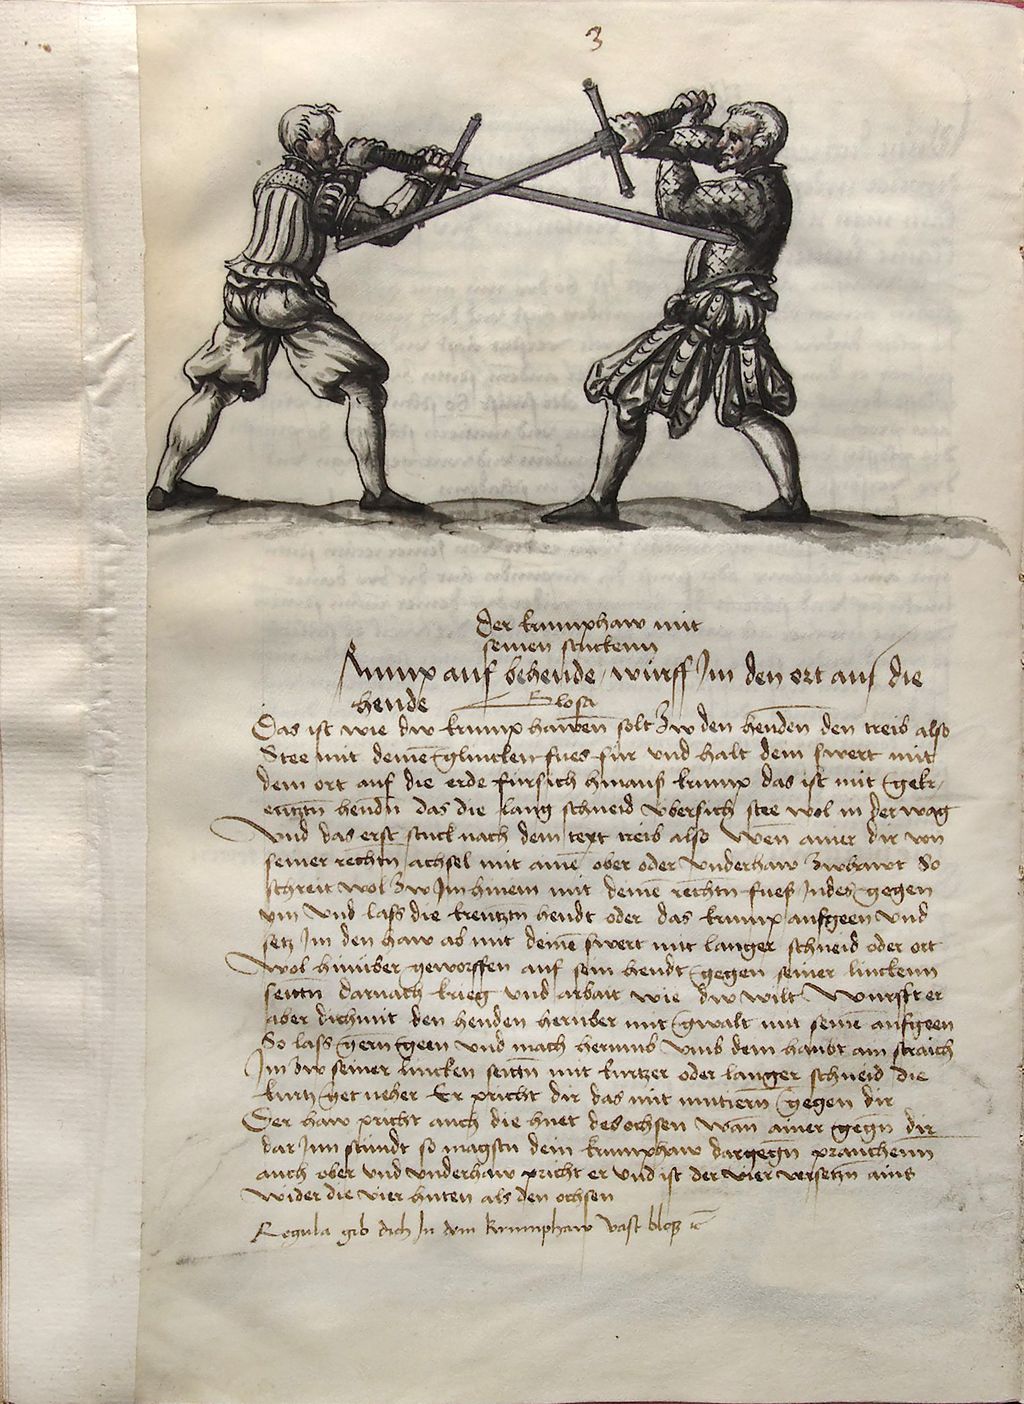 3
Der krumphaw mit
seinen stuckenn
Krump auf behende / wurff Im den ort auf die
hende Glosa
Das ist wie dw krump hawen solt Zw den henden den treib also
Stee mit deinē glincken fues für vnd halt dein swert mit
dem ort auf die erde fürsich hinauß krump das ist mit gekr-
eutztn̄ hendn̄ das die lang schneid vbersich stee wol in der wag
Vnd das erst stuck nach dem text treib also Wen ainer dir von
seiner rechtn̄ achsel mit ainē ober oder vnderhaw Zwhawt So
schreit wol Zw Im hinein mit deinē rechtn̄ fueß Indes gegen
ym Vnd lass die kreutztn̄ hendt oder das krump aufgeen Vnd
setz Im den haw ab mit deinē swert mit langer schneid oder ort
Wol hinüber geworffen auf sein hendt gegen seiner linckenn
seittn̄ darnach krieg vnd arbait wie dw wilt Wurfft er
aber dich mit den henden herüber mit gwalt mit seinē aufgeen
So lass gern geen vnd mach herumb Vmb dein haubt ain straich
Im Zw seiner lincken seittn̄ mit kurtzer oder langer schneid die
kurtz get neher Er pricht dir das mit mutiern̄ gegen dir
Der haw pricht auch die huet des ochsen Wan ainer gegn̄ dir
dar Inn stundt so magstu dein krumphaw dargegn̄ prauchenn
auch ober vnd vnderhaw pricht er vnd ist der vier versetzn̄ ains
wider die vier huten als den ochsen
Regula gib dich In dem krumphaw vast bloß